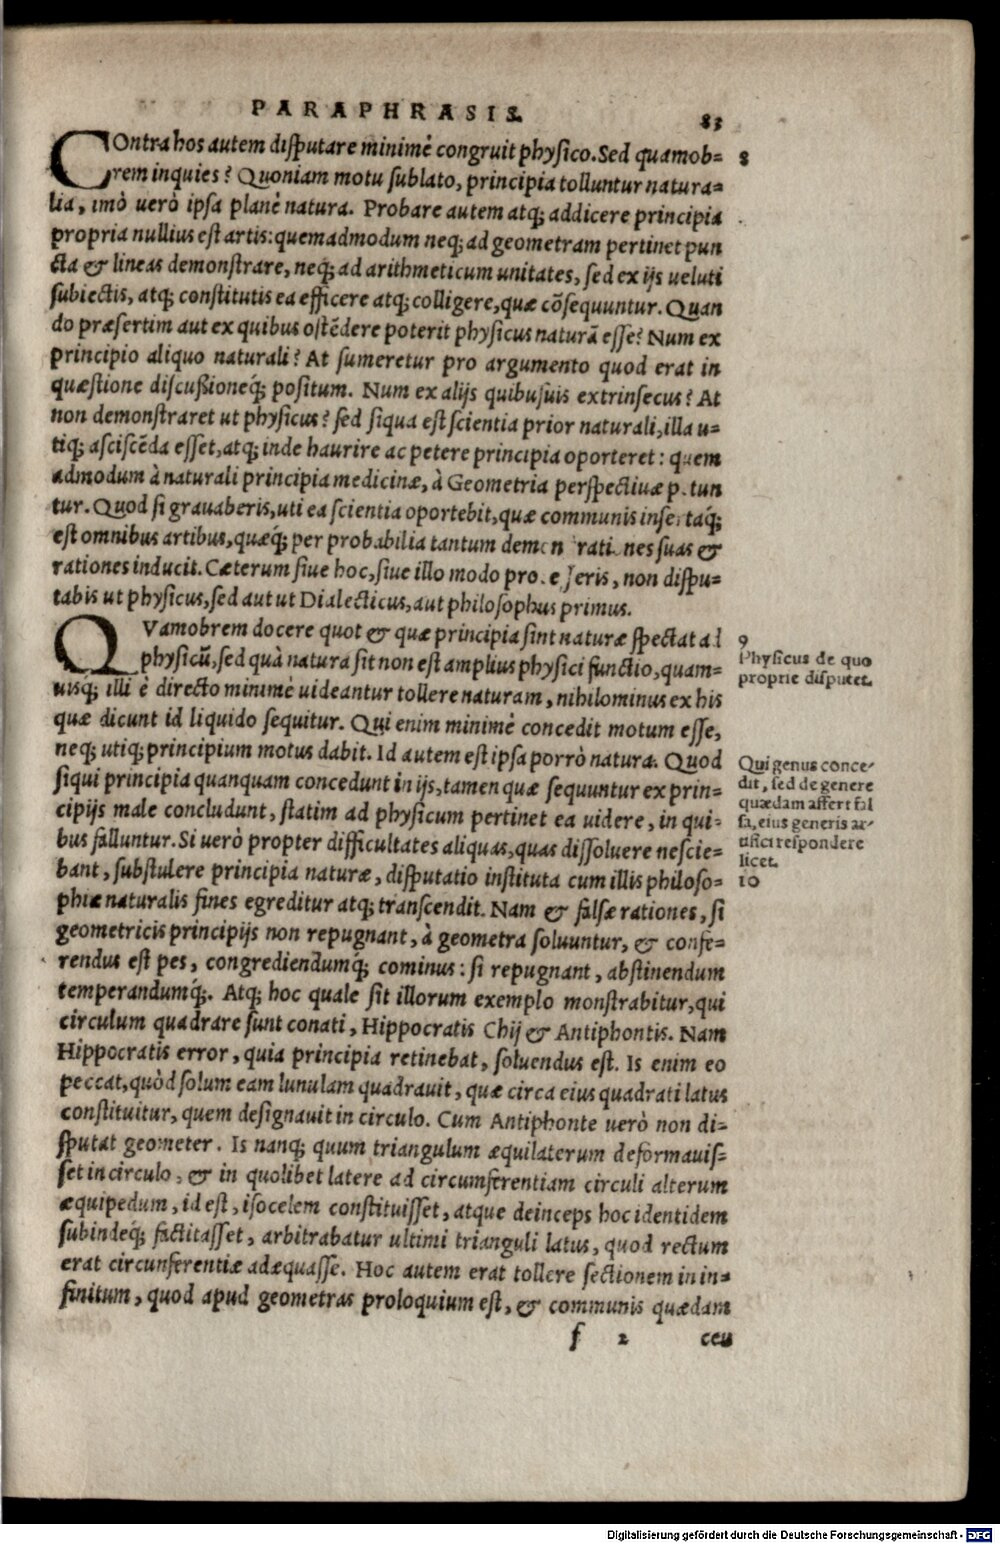 PARAPHRASIS.
83
COntra hos autem disputare minimè congruit physico. Sed quamob= 8
rem inquies? Quoniam motu sublato, principia tolluntur natura=
lia, imò uerò ipsa planè natura. Probare autem atq; addicere principia
propria nullius est artis: quemadmodum neq; ad geometram pertinet pun
cta & lineas demonstrare, neq; ad arithmeticum unitates, sed ex ijs ueluti
subiectis, atq; constitutis ea efficere atq; colligere, quæ cõsequuntur. Quan
do præsertim aut ex quibus ostẽdere poterit physicus naturã esse? Num ex
principio aliquo naturali? At sumeretur pro argumento quod erat in
quæstione discußioneq́; positum. Num ex alijs quibusuis extrinsecus? At
non demonstraret ut physicus? sed siqua est scientia prior naturali, illa u=
tiq; asciscẽda esset, atq; inde haurire ac petere principia oporteret: quem
admodum à naturali principia medicinæ, à Geometria perspectiuæ p.tun
tur. Quod si grauaberis, uti ea scientia oportebit, quæ communis insertaq́;
est omnibus artibus, quæq́; per probabilia tantum demon rati nes suas &
rationes inducit. Cæterum siue hoc, siue illo modo pro e seris, non dispu=
tabis ut physicus, sed aut ut Dialecticus, aut philosophus primus.
QVamobrem docere quot & quæ principia sint naturæ spectat ad
physicũ, sed quà natura sit non est amplius physici functio, quam=
uisq; illi è directo minimè uideantur tollere naturam, nihilominus ex his
quæ dicunt id liquido sequitur. Qui enim minimè concedit motum esse,
neq; utiq; principium motus dabit. Id autem est ipsa porrò natura. Quod
siqui principia quanquam concedunt in ijs, tamen quæ sequuntur ex prin=
cipijs male concludunt, statim ad physicum pertinet ea uidere, in qui=
bus falluntur. Si uerò propter difficultates aliquas, quas dissoluere nescie=
bant, substulere principia naturæ, disputatio instituta cum illis philoso=
phiæ naturalis fines egreditur atq; transcendit. Nam & falsæ rationes, si
geometricis principijs non repugnant, à geometra soluuntur, & confe=
rendus est pes, congrediendumq́; cominus: si repugnant, abstinendum
temperandumq́;. Atq; hoc quale sit illorum exemplo monstrabitur, qui
circulum quadrare sunt conati, Hippocratis Chij & Antiphontis. Nam
Hippocratis error, quia principia retinebat, soluendus est. Is enim eo
peccat, quòd solum eam lunulam quadrauit, quæ circa eius quadrati latus
constituitur, quem designauit in circulo. Cum Antiphonte uerò non di=
sputat geometer. Is nanq; quum triangulum æquilaterum deformauis=
set in circulo, & in quolibet latere ad circumferentiam circuli alterum
æquipedum, id est, isocelem constituisset, atque deinceps hoc identidem
subindeq́; factitasset, arbitrabatur ultimi trianguli latus, quod rectum
erat circunferentiæ adæquasse. Hoc autem erat tollere sectionem in in=
finitum, quod apud geometras proloquium est, & communis quædam
f 2 ceu
9
Physicus de quo
proprie disputet.
Qui genus conce-
dit, sed de genere
quædam affert fal
sa, eius generis ar-
tifici respondere
licet.
10
Digitalisierung gefördert durch die Deutsche Forschungsgemeinschaft - DFG